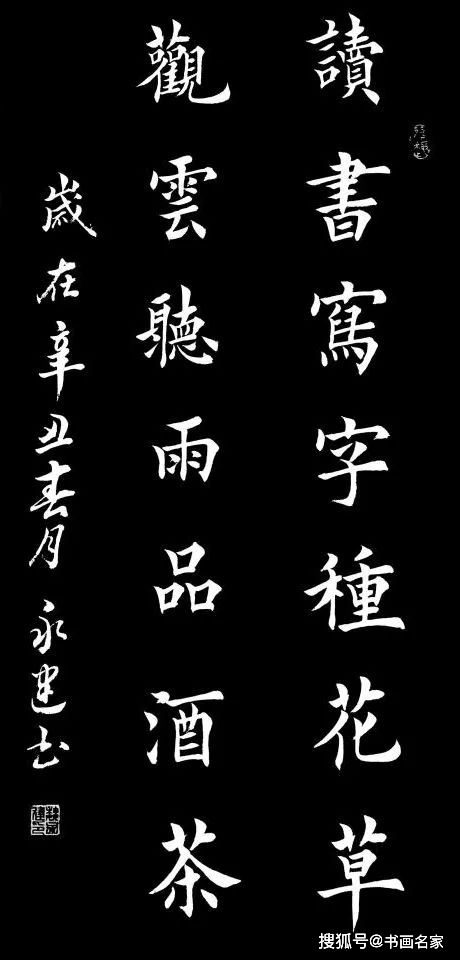 讀書寫字種花草
觀雲聽雨品酒茶
歲在辛丑春月永建书
搜狐号@书画名家